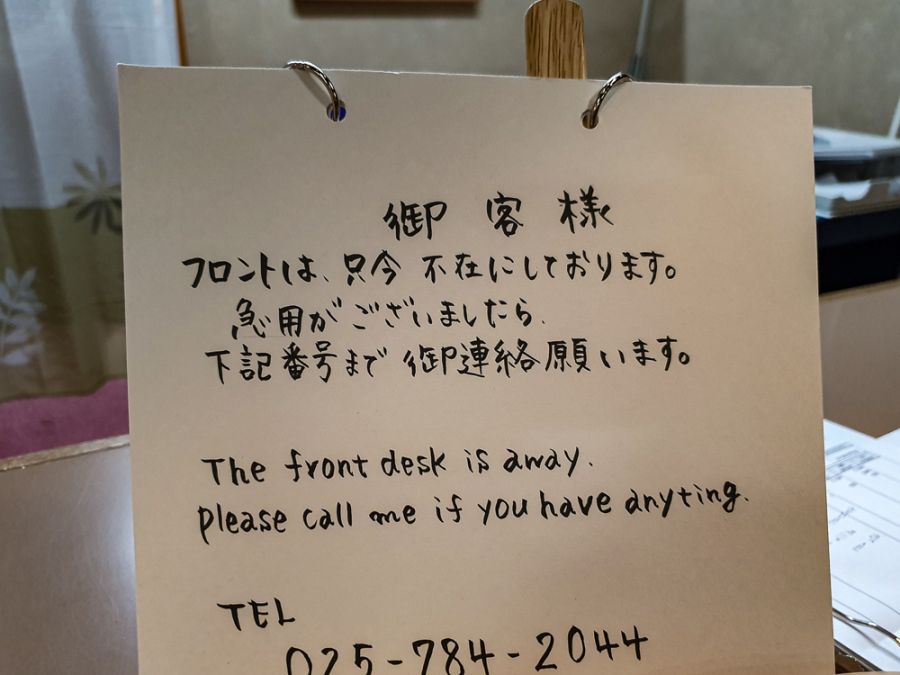 御客様
フロントは、只今 不在にしております。
急用がございましたら、
下記番号まで 御連絡願います。
The front desk is away.
please call me if you have anyting.
TEL
025-784-2044